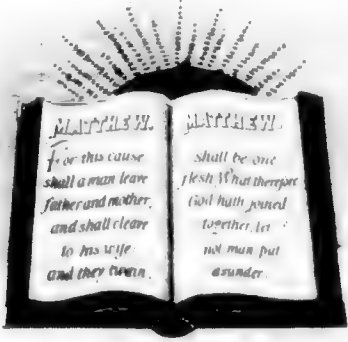 MATTHEW.
For this cause
shall a man leave
father and mother,
and shall cleave
to his wife
and they twain
MATTHEW.
shall be one
flesh. What therefore
God hath joined
together, let
not man put
asunder.